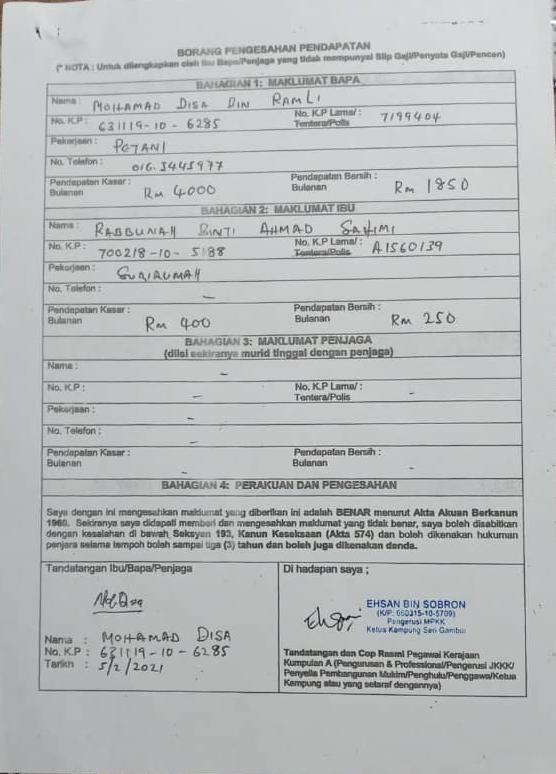 BORANG PENGESAHAN PENDAPATAN
(* NOTA : Untuk dilengkapkan oleh Ibu Bapa/Penjaga yang tidak mempunyai Slip Gaji/Penyata Gaji/Pencen)
BAHAGIAN 1: MAKLUMAT BAPA
Nama : MOHAMAD DISA BIN RAMLI
No. K.P : 631119-10-6285 No. K.P Lama/: Tentera/Polis 7199404
Pekerjaan : PETANI
No. Telefon : 016-3445977
Pendapatan Kasar : Bulanan Rm 4000 Pendapatan Bersih : Bulanan Rm 1850
BAHAGIAN 2: MAKLUMAT IBU
Nama : RABBUNAH BINTI AHMAD SAHIMI
No. K.P : 700218-10-5188 No. K.P Lama/ : Tentera/Polis A1560139
Pekerjaan : SURIRUMAH
No. Telefon : –
Pendapatan Kasar : Bulanan Rm 400 Pendapatan Bersih : Bulanan Rm 250
BAHAGIAN 3: MAKLUMAT PENJAGA
(diisi sekiranya murid tinggal dengan penjaga)
Nama : –
No. K.P : – No. K.P Lama/ : Tentera/Polis -
Pekerjaan : –
No. Telefon : –
Pendapatan Kasar : Bulanan – Pendapatan Bersih : Bulanan -
BAHAGIAN 4: PERAKUAN DAN PENGESAHAN
Saya dengan ini mengesahkan maklumat yang diberikan ini adalah BENAR menurut Akta Akuan Berkanun
1960. Sekiranya saya didapati memberi dan mengesahkan maklumat yang tidak benar, saya boleh disabitkan
dengan kesalahan di bawah Seksyen 193, Kanun Keseksaan (Akta 574) dan boleh dikenakan hukuman
penjara selama tempoh boleh sampai tiga (3) tahun dan boleh juga dikenakan denda.
Tandatangan Ibu/Bapa/Penjaga
Nama : MOHAMAD DISA
No. K.P : 631119-10-6285
Tarikh : 5/2/2021
Di hadapan saya ;
EHSAN BIN SOBRON
(K/P: 660315-10-5709)
Pengerusi MPKK
Ketua Kampung Seri Gambut
Tandatangan dan Cop Rasmi Pegawai Kerajaan
Kumpulan A (Pengurusan & Professional/Pengerusi JKKK/
Penyelia Pembangunan Mukim/Penghulu/Penggawa/Ketua
Kampung atau yang setaraf dengannya)